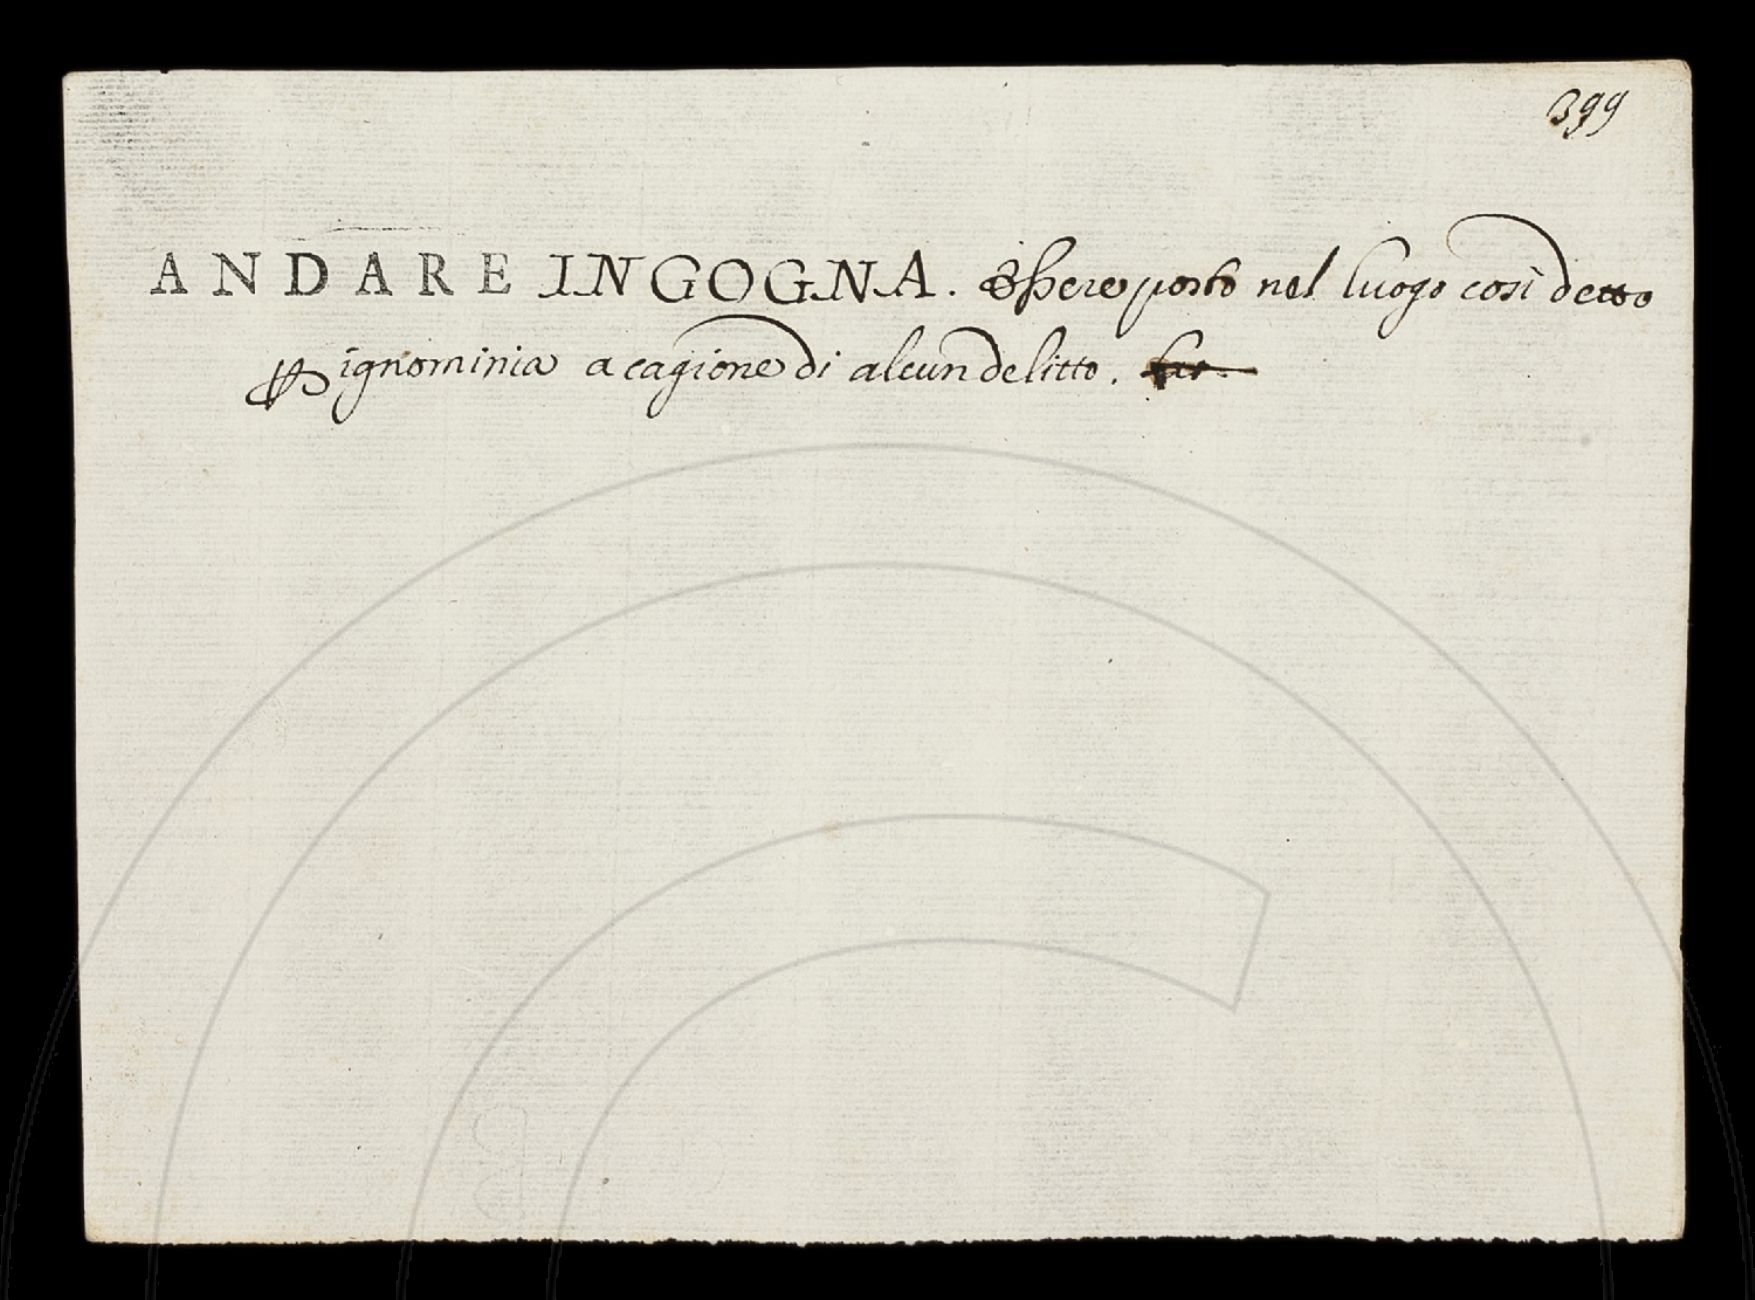 399
ANDARE IN GOGNA. Essere posto nel luogo così detto
ꝑ ignominia a cagione di alcun delitto.